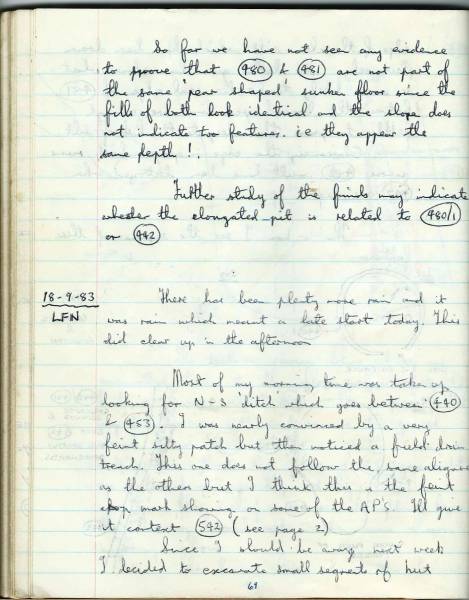 So far we have not seen any evidence
to prove that 480 & 481 are not part of
the same 'pear shaped' sunken floor since the
fills of both look identical and the slope does
not indicate two features. i.e they appear the
same depth!.
Further study of the finds may indicate
whether the elongated pit is related to 480/1
or 442
18-9-83
LFN
There has been plenty more rain and it
was rain which meant a late start today. This
did clear up in the afternoon
Most of my morning time was taken up
looking for N-S 'ditch' which goes between 440
& 453. I was nearly convinced by a very
feint silty patch but then noticed a field drain
trench. This one does not follow the same aligne
as the other but I think this is the feint
crop mark showing on some of the AP's. I'll give
it context 542 (see page 2)
Since I should be away next week
I decided to excavate small segments of hut
69